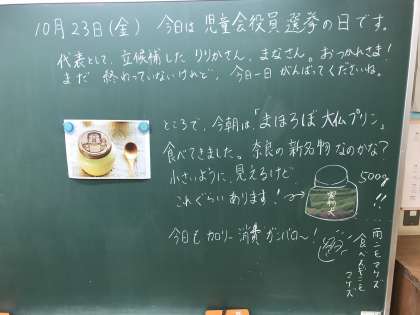 10月23日(金) 今日は児童会役員選挙の日です。
代表として、立候補した りりかさん、まなさん。おつかれさま!
まだ 終わっていないけれど、今日一日 がんばってくださいね。
ところで、今朝は、「まほろば大仏プリン」
食べてきました。奈良の新名物なのかな?
小さいように、見えるけど
これぐらい あります!→
実物大
500g!!
今日も カロリー消費 ガンバロ〜!
雨ニモマケズ
食べ
マケズ